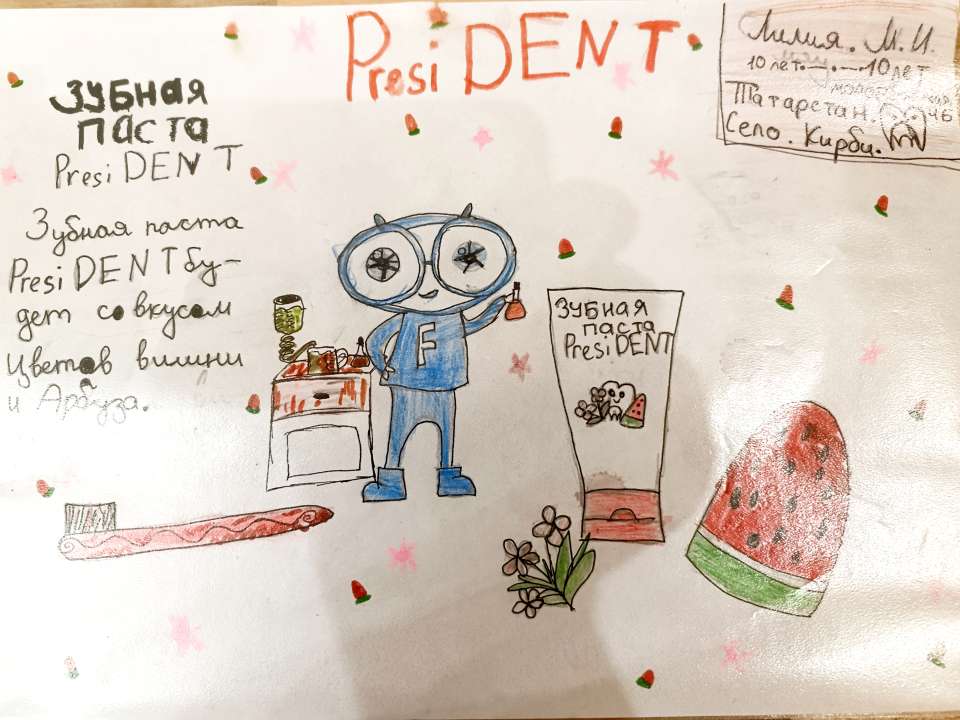 PresiDENT
Лилия. М. И.
10 лет. 10 лет
Татарстан.
Село. Кирби.
Зубная
паста
PresiDENT
Зубная паста
PresiDENT бу-
дет со вкусом
Цветов вишни
и Арбуза.
F
Зубная
паста
PresiDENT